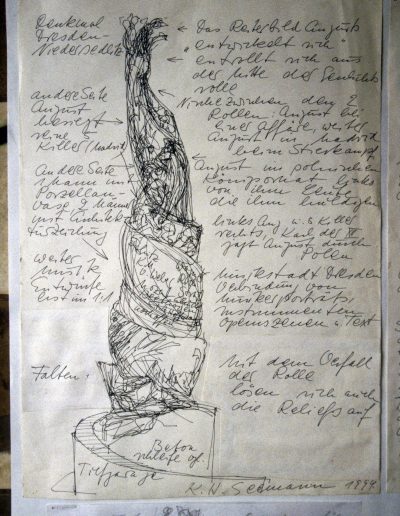 Denkmal
Dresden-
Niedersedlitz
andere Seite
August
besiegt
seine
Killer (Madrid)
Andere Seite
1 Mann mit
Porzellan-
vase, 2 Männer
mit
weiter
Musik
entwürfe
erst im 1:1
Falten:
Das Reiterbild Augusts
"entwickelt sich"
entrollt sich aus
der Mitte der Senkrechts
rolle
Nische zwischen den 2
Rollen: August bei
einer Affäre, weiter
August in Madrid
beim Stierkampf
August im polnischen
Königsornat links
von ihm Leute
die ihm huldigen
links Aug. u. s. Killer
rechts, Karl der XII
jagt August durch
Polen
Musikstadt Dresden
Verbindung von
Musikerporträts
Instrumenten
Opernszenen u. Text
Mit dem Verfall
der Rolle
lösen sich auch
die Reliefs auf
Beton
Tiefgarage
K. H. Seemann 1994